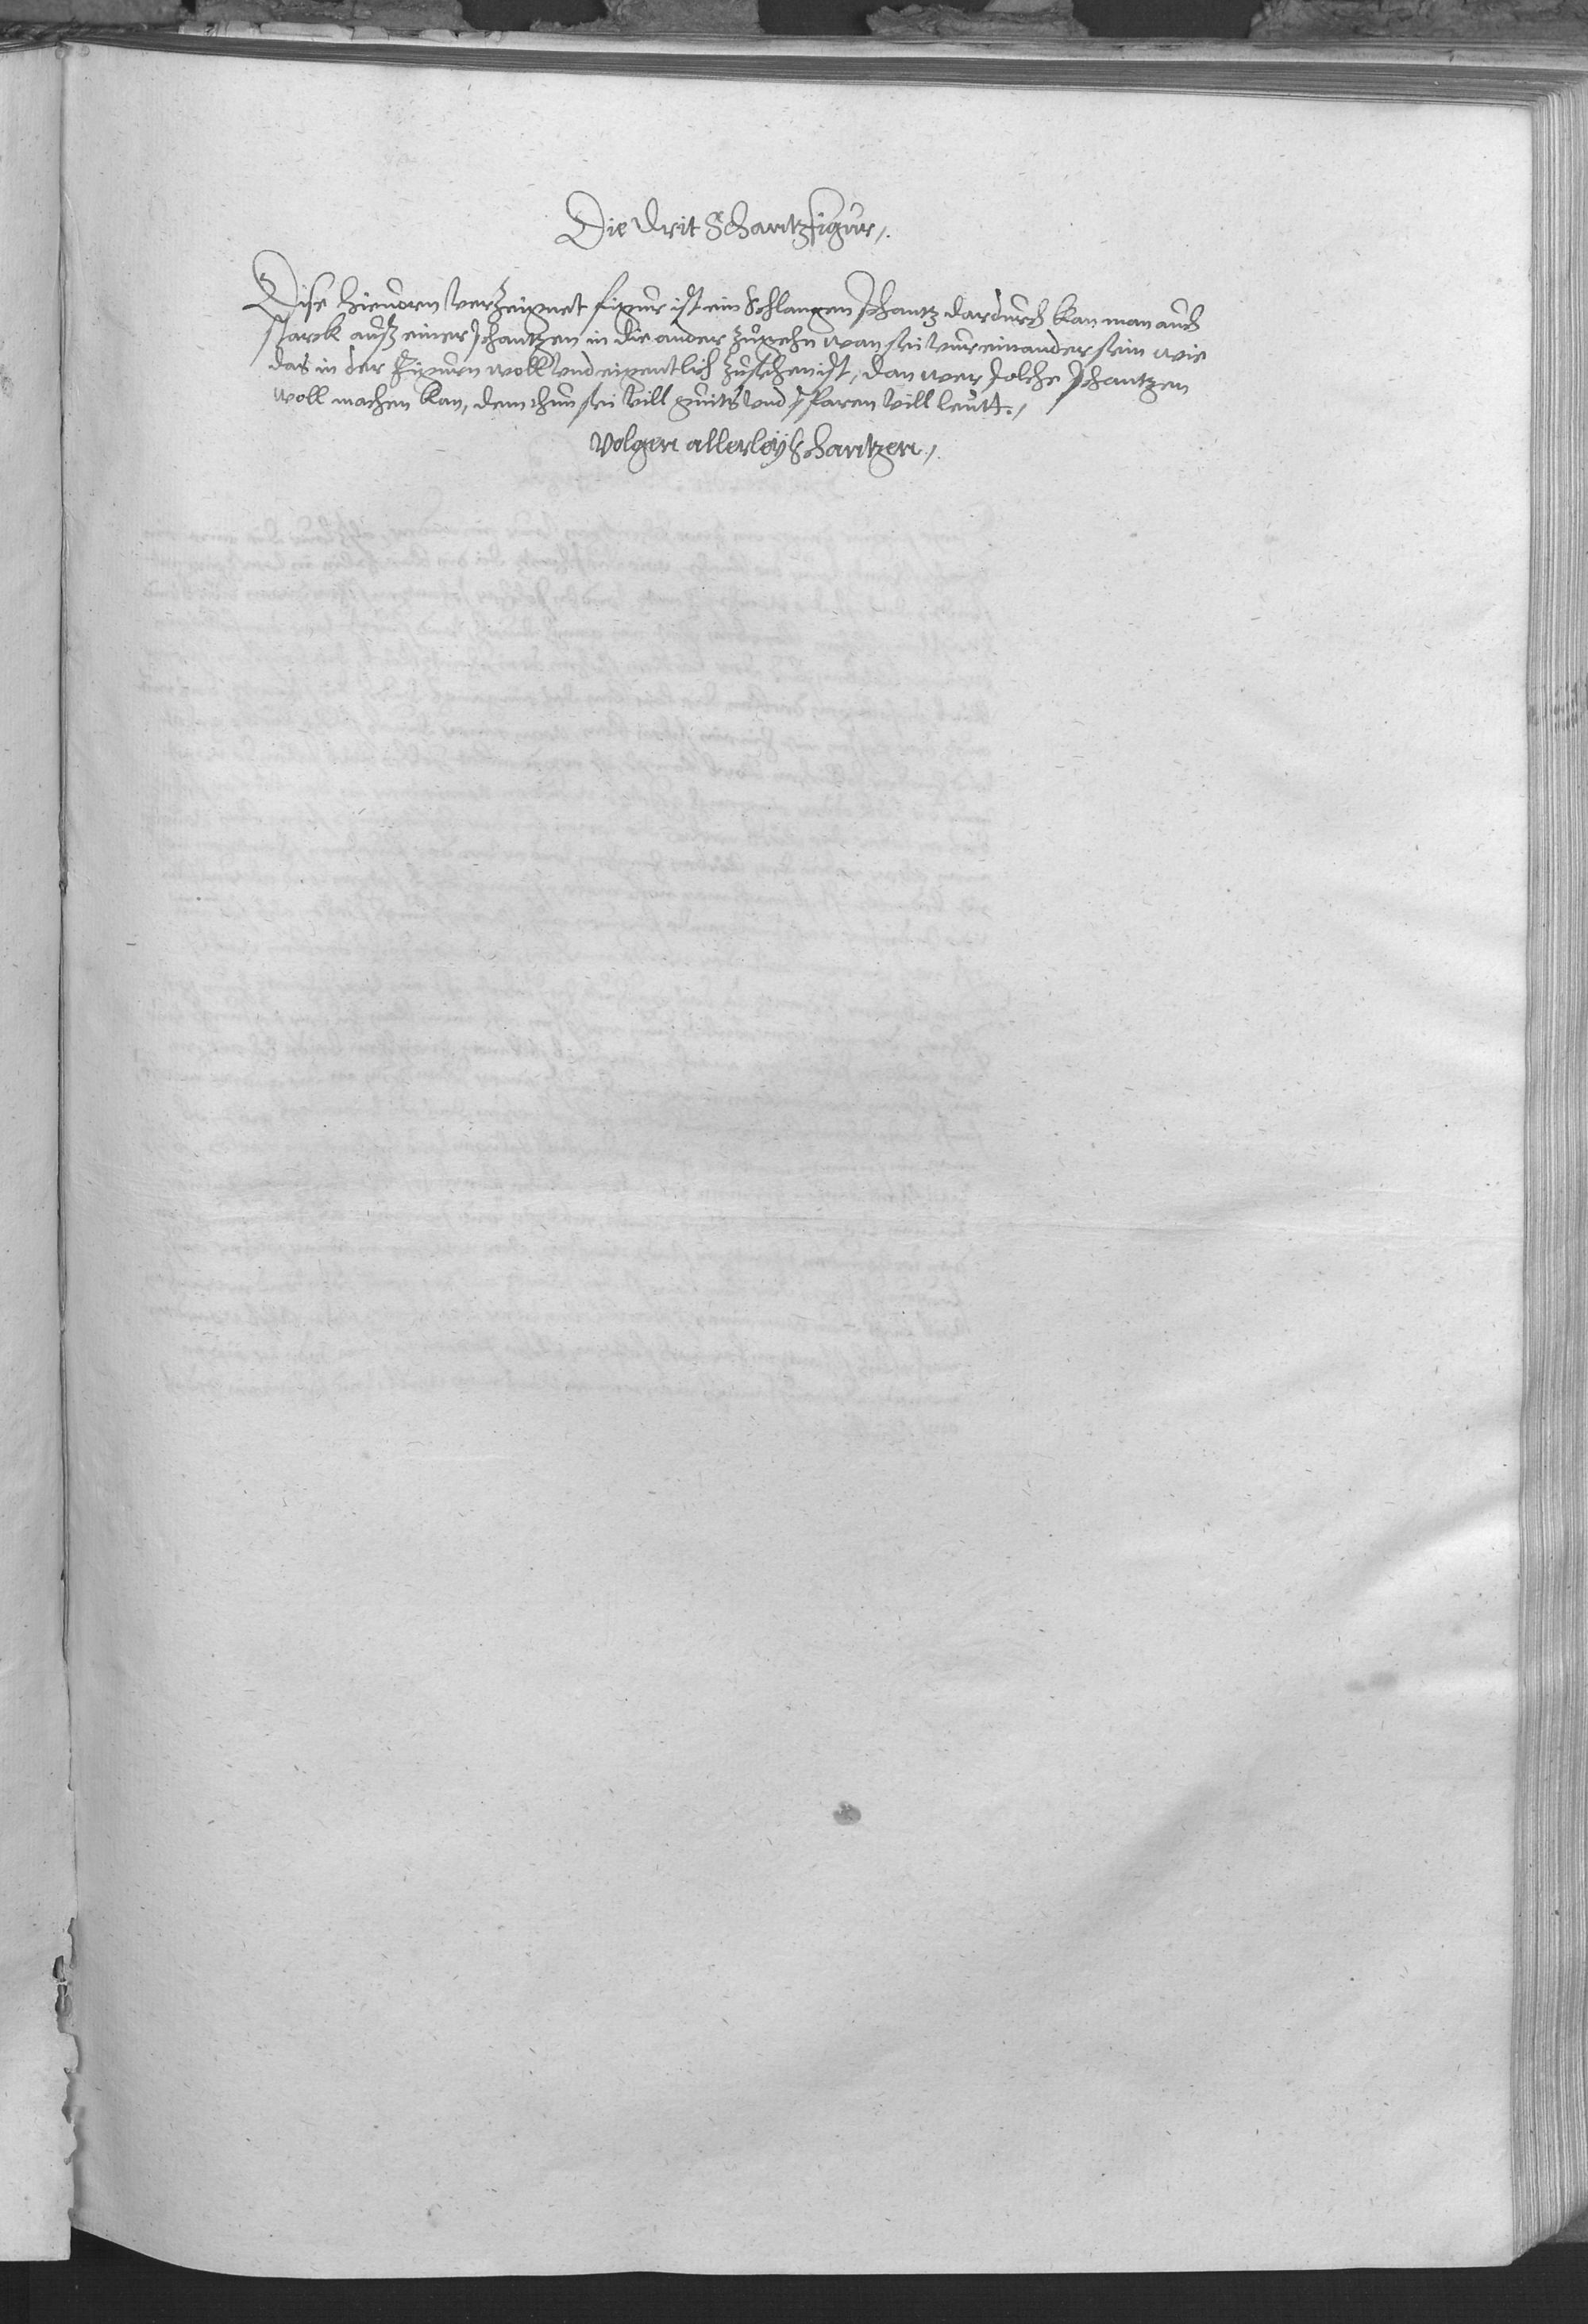 Die drit Schantzfigur /.
Dise hieuorn verzeignet figur ist ein Schlangen schantz dardurch kan man auch
starck ausz einer schantzen in die ander zůgehn wan sei vnreinander sein wie
das in der Figuren woll vnd eigentlich zusehen ist, dan wer solche schantzen
woll machen kan, dem thun sei vill guits vnd sparen vill leutt. /
Volgen allerleÿ Schantzen /.